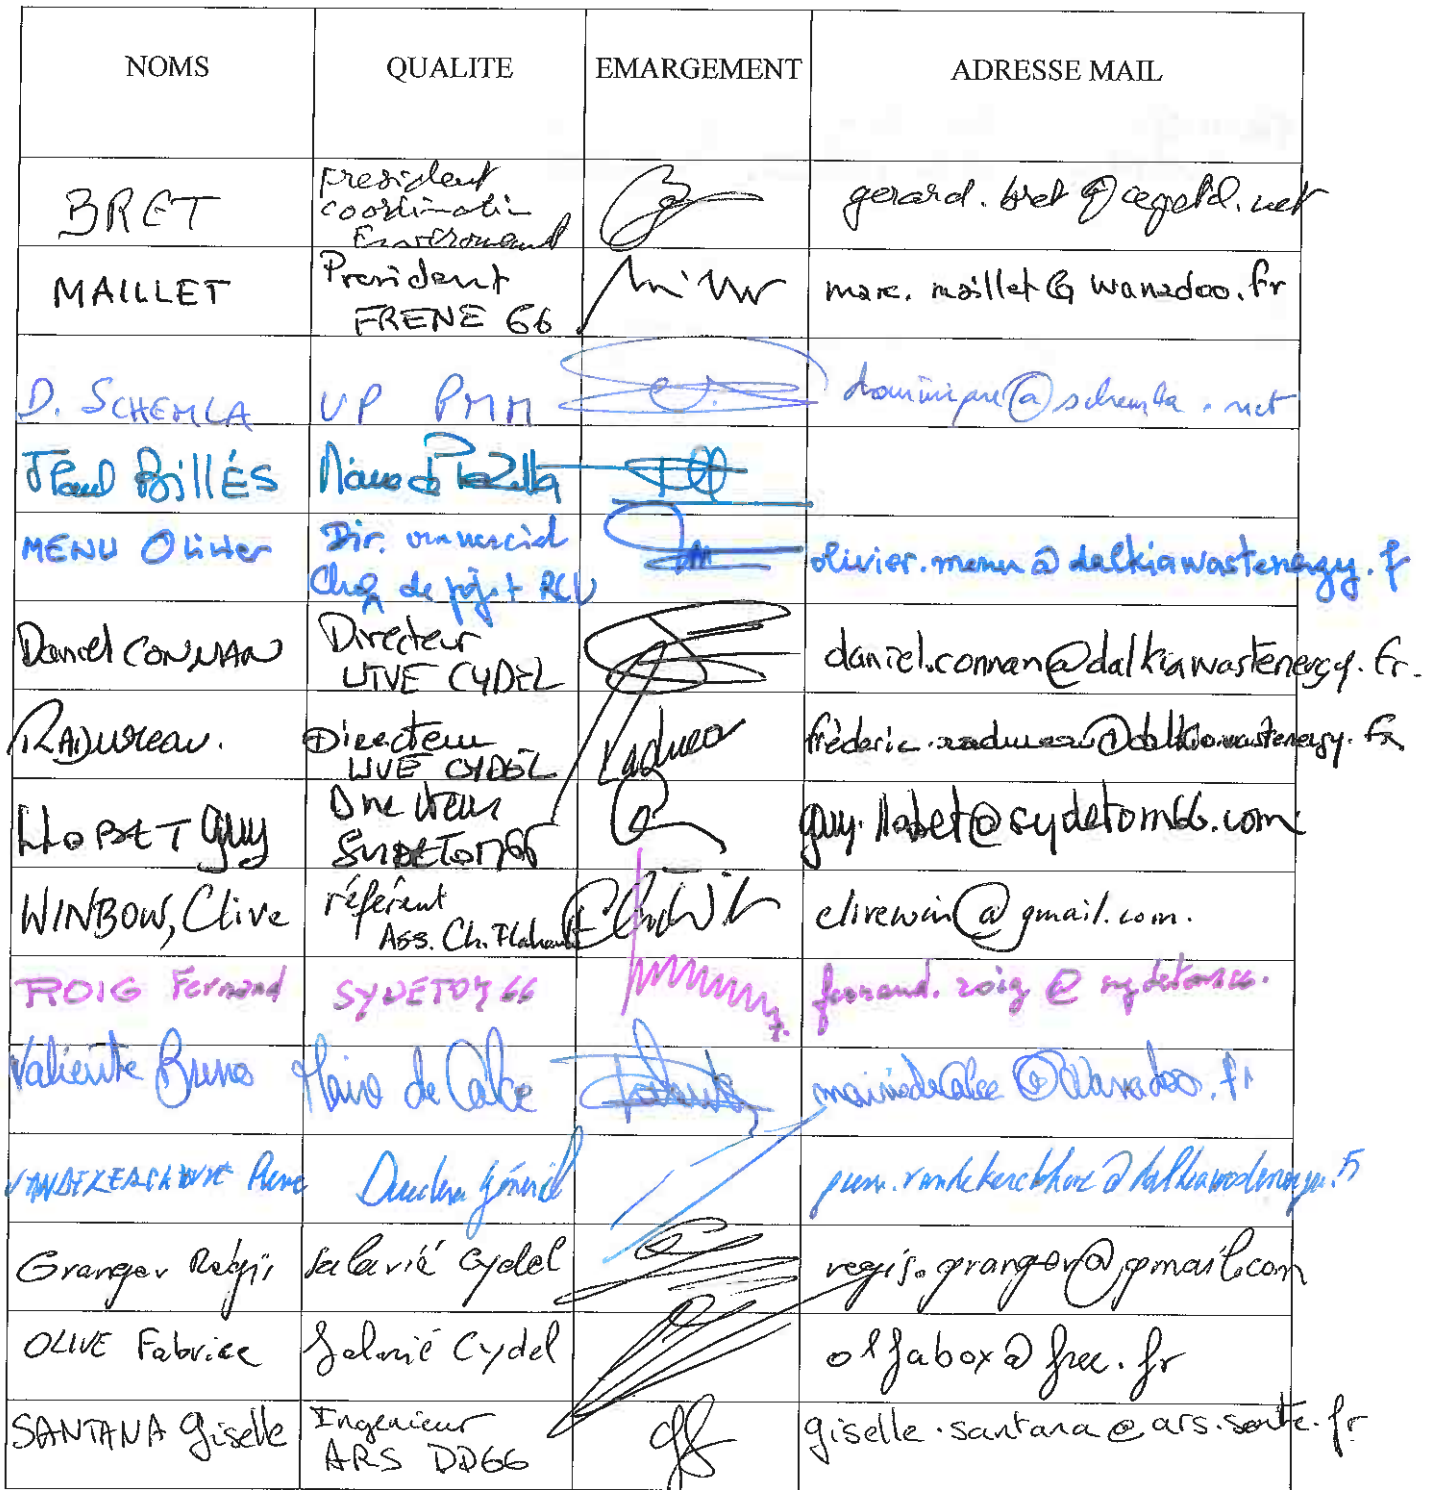 NOMS QUALITE EMARGEMENT ADRESSE MAIL
BRET président coordination Environnement gerard.bret@cegetel.net
MAILLET President FRENE 66 marc.maillet@wanadoo.fr
D. SCHEMLA VP PMM dominique@schemla.net
JPaul BILLÉS Maire de
MENU Olivier Dir. commercial Chef de projet RCU olivier.menu@dalkiawastenergy.f
Daniel CONNAN Directeur UIVE CYDEL daniel.connan@dalkiawastenergy.fr.
RADUREAU. Directeur UIVE CYDEL frédéric.radureau@dalkiawastenergy.fr
LLOBET Guy Directeur SYDETOM66 guy.llobet@sydetom66.com
WINBOW, Clive référent Ass. Ch. Flahault clivewin@gmail.com.
ROIG Fernand SYDETOM 66 fernand.roig@sydetom66.
Valiente Bruno Maire de Calce mairiedecalce@wanadoo.fr
VANDEKERCKHOVE Pierre Directeur Général
Granger Régis salarié Cydel regis.granger@gmail.com
OLIVE Fabrice Salarié Cydel olfabox@free.fr
SANTANA Giselle Ingenieur ARS DD66 giselle.santana@ars.sante.fr